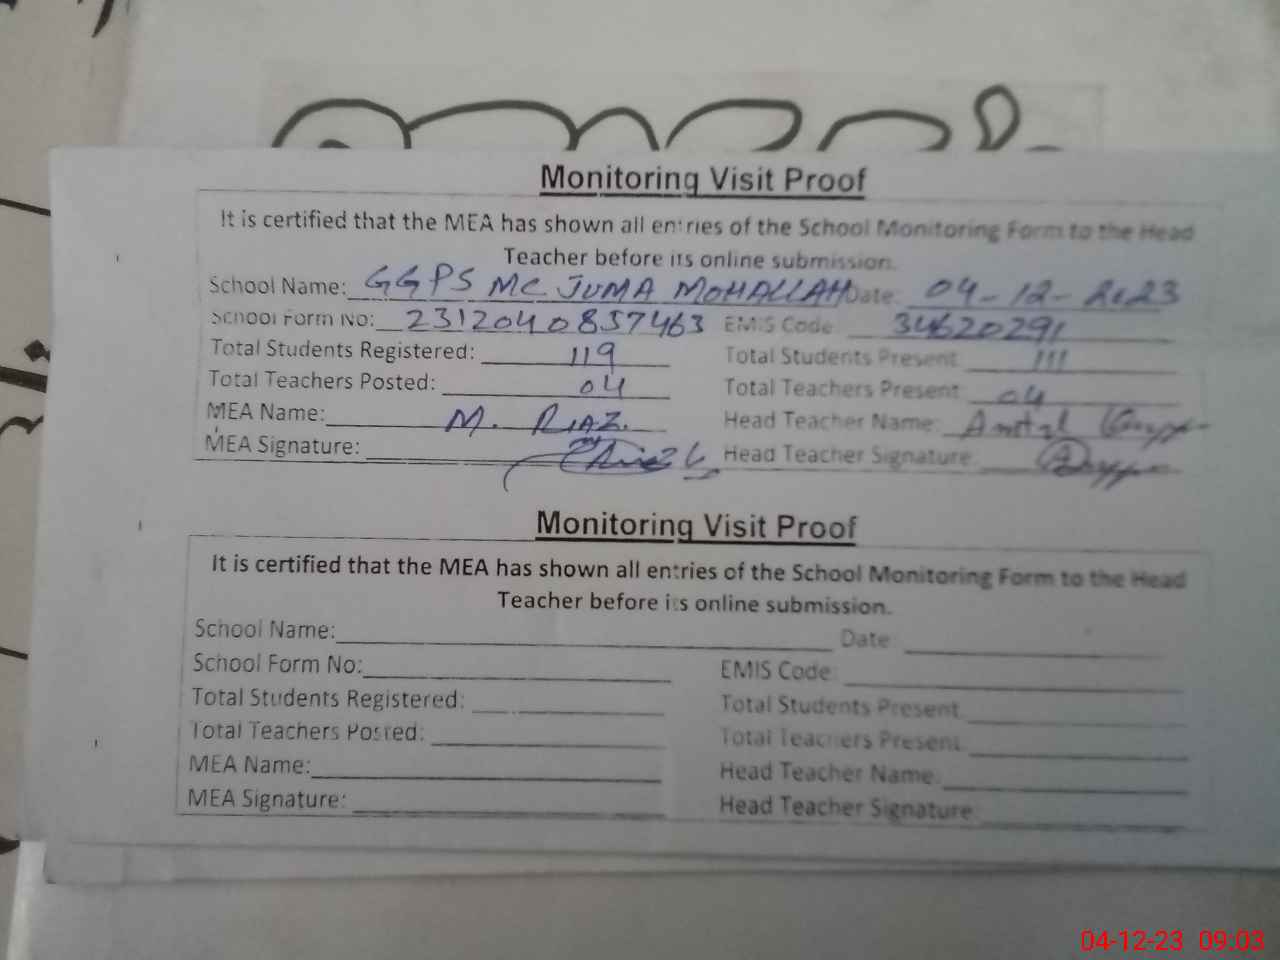 Monitoring Visit Proof
It is certified that the MEA has shown all entries of the School Monitoring Form to the Head
Teacher before its online submission.
School Name: GGPS MC JUMA MOHALLAH Date: 04-12-2023
School Form No: 2312040857463 EMIS Code 34620291
Total Students Registered: 119 Total Students Present 111
Total Teachers Posted: 04 Total Teachers Present 04
MEA Name: M. RIAZ. Head Teacher Name:
MEA Signature: Head Teacher Signature
Monitoring Visit Proof
It is certified that the MEA has shown all entries of the School Monitoring Form to the Head
Teacher before its online submission.
School Name: Date
School Form No: EMIS Code:
Total Students Registered: Total Students Present
Total Teachers Posted: Total Teachers Present
MEA Name: Head Teacher Name:
MEA Signature: Head Teacher Signature
04-12-23 09:03